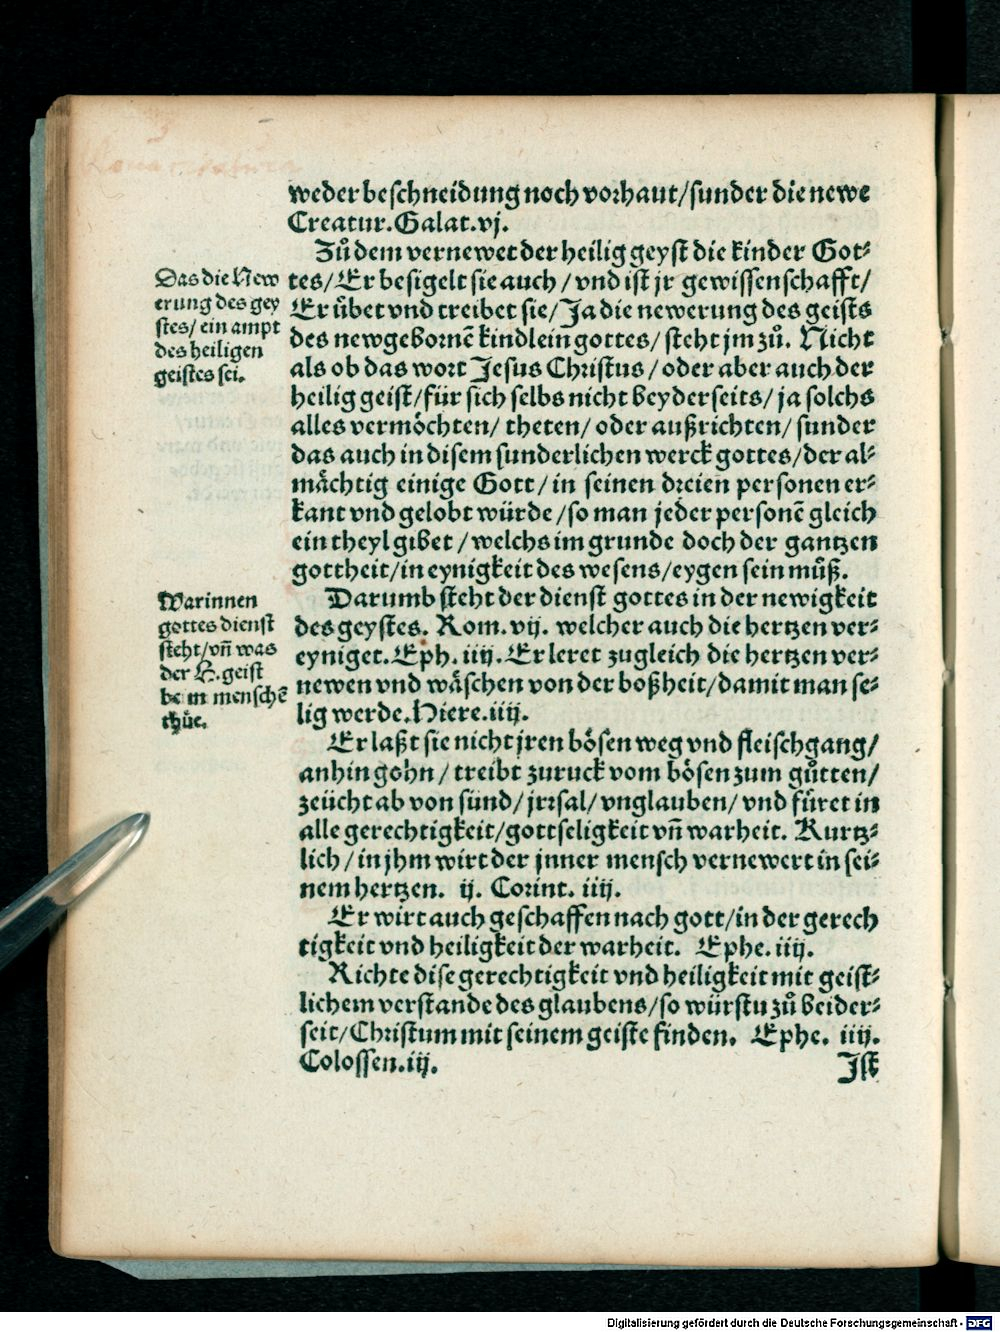 weder beschneidung noch vorhaut/sunder die newe
Creatur. Galat.vj.
Zůdem vernewet der heilig geyst die kinder Got⸗
tes/Er besigelt sie auch/vnd ist jr gewissenschafft/
Er ůbet vnd treibet sie/Ja die newerung des geists
des newgebornẽ kindlein gottes/steht jm zů. Nicht
als ob das wort Jesus Christus/oder aber auch der
heilig geist/für sich selbs nicht beyderseits/ja solchs
alles vermöchten/theten/oder außrichten/sunder
das auch in disem sunderlichen werck gottes/der al⸗
mächtig einige Gott/in seinen dreien personen er⸗
kant vnd gelobt würde/so man jeder personẽ gleich
ein theyl gibet/welchs im grunde doch der gantzen
gottheit/in eynigkeit des wesens/eygen sein můß.
Darumb steht der dienst gottes in der newigkeit
des geystes. Rom.vij. welcher auch die hertzen ver⸗
eyniget. Eph.iiij. Er leret zugleich die hertzen ver⸗
newen vnd wäschen von der boßheit/damit man se⸗
lig werde. Hiere.iiij.
Er laßt sie nicht jren bösen weg vnd fleischgang/
anhin gohn/treibt zuruck vom bösen zum gůtten/
zeücht ab von sünd/jrrsal/vnglauben/vnd fůret in
alle gerechtigkeit/gottseligkeit vñ warheit. Kurtz⸗
lich/in jhm wirt der jnner mensch vernewert in sei⸗
nem hertzen. ij. Corint. iiij.
Er wirt auch geschaffen nach gott/in der gerech
tigkeit vnd heiligkeit der warheit. Ephe.iiij.
Richte dise gerechtigkeit vnd heiligkeit mit geist⸗
lichem verstande des glaubens/so würstu zů beider⸗
seit/Christum mit seinem geiste finden. Ephe. iiij.
Colossen.iij.
Ist
Das die New
erung des gey
stes/ein ampt
des heiligen
geistes sei.
Warinnen
gottes dienst
steht/vñ was
der H. geist
beim menschẽ
thüe.
Digitalisierung gefördert durch die Deutsche Forschungsgemeinschaft - DFG